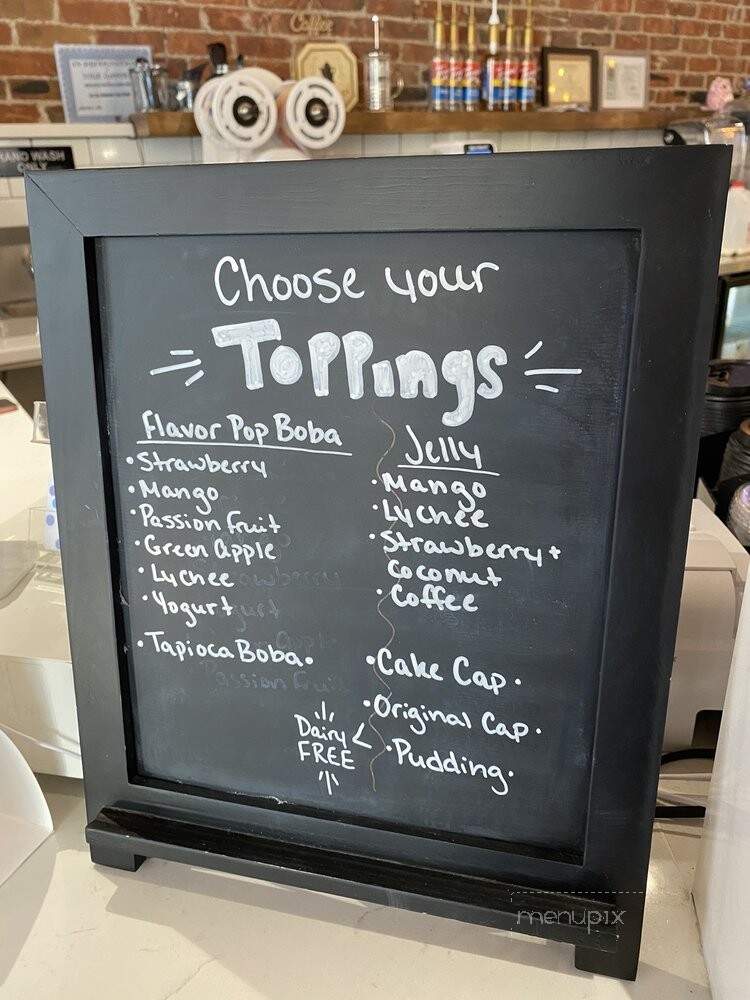 Coffee
HAND WASH
ONLY
Choose your
Toppings
Flavor Pop Boba
• Strawberry
• Mango
• Passion Fruit
• Green Apple
• Lychee
• Yogurt
• Tapioca Boba •
Jelly
• Mango
• Lychee
• Strawberry +
Coconut
• Coffee
• Cake Cap •
• Original Cap •
• Pudding •
Dairy <
FREE
menupix